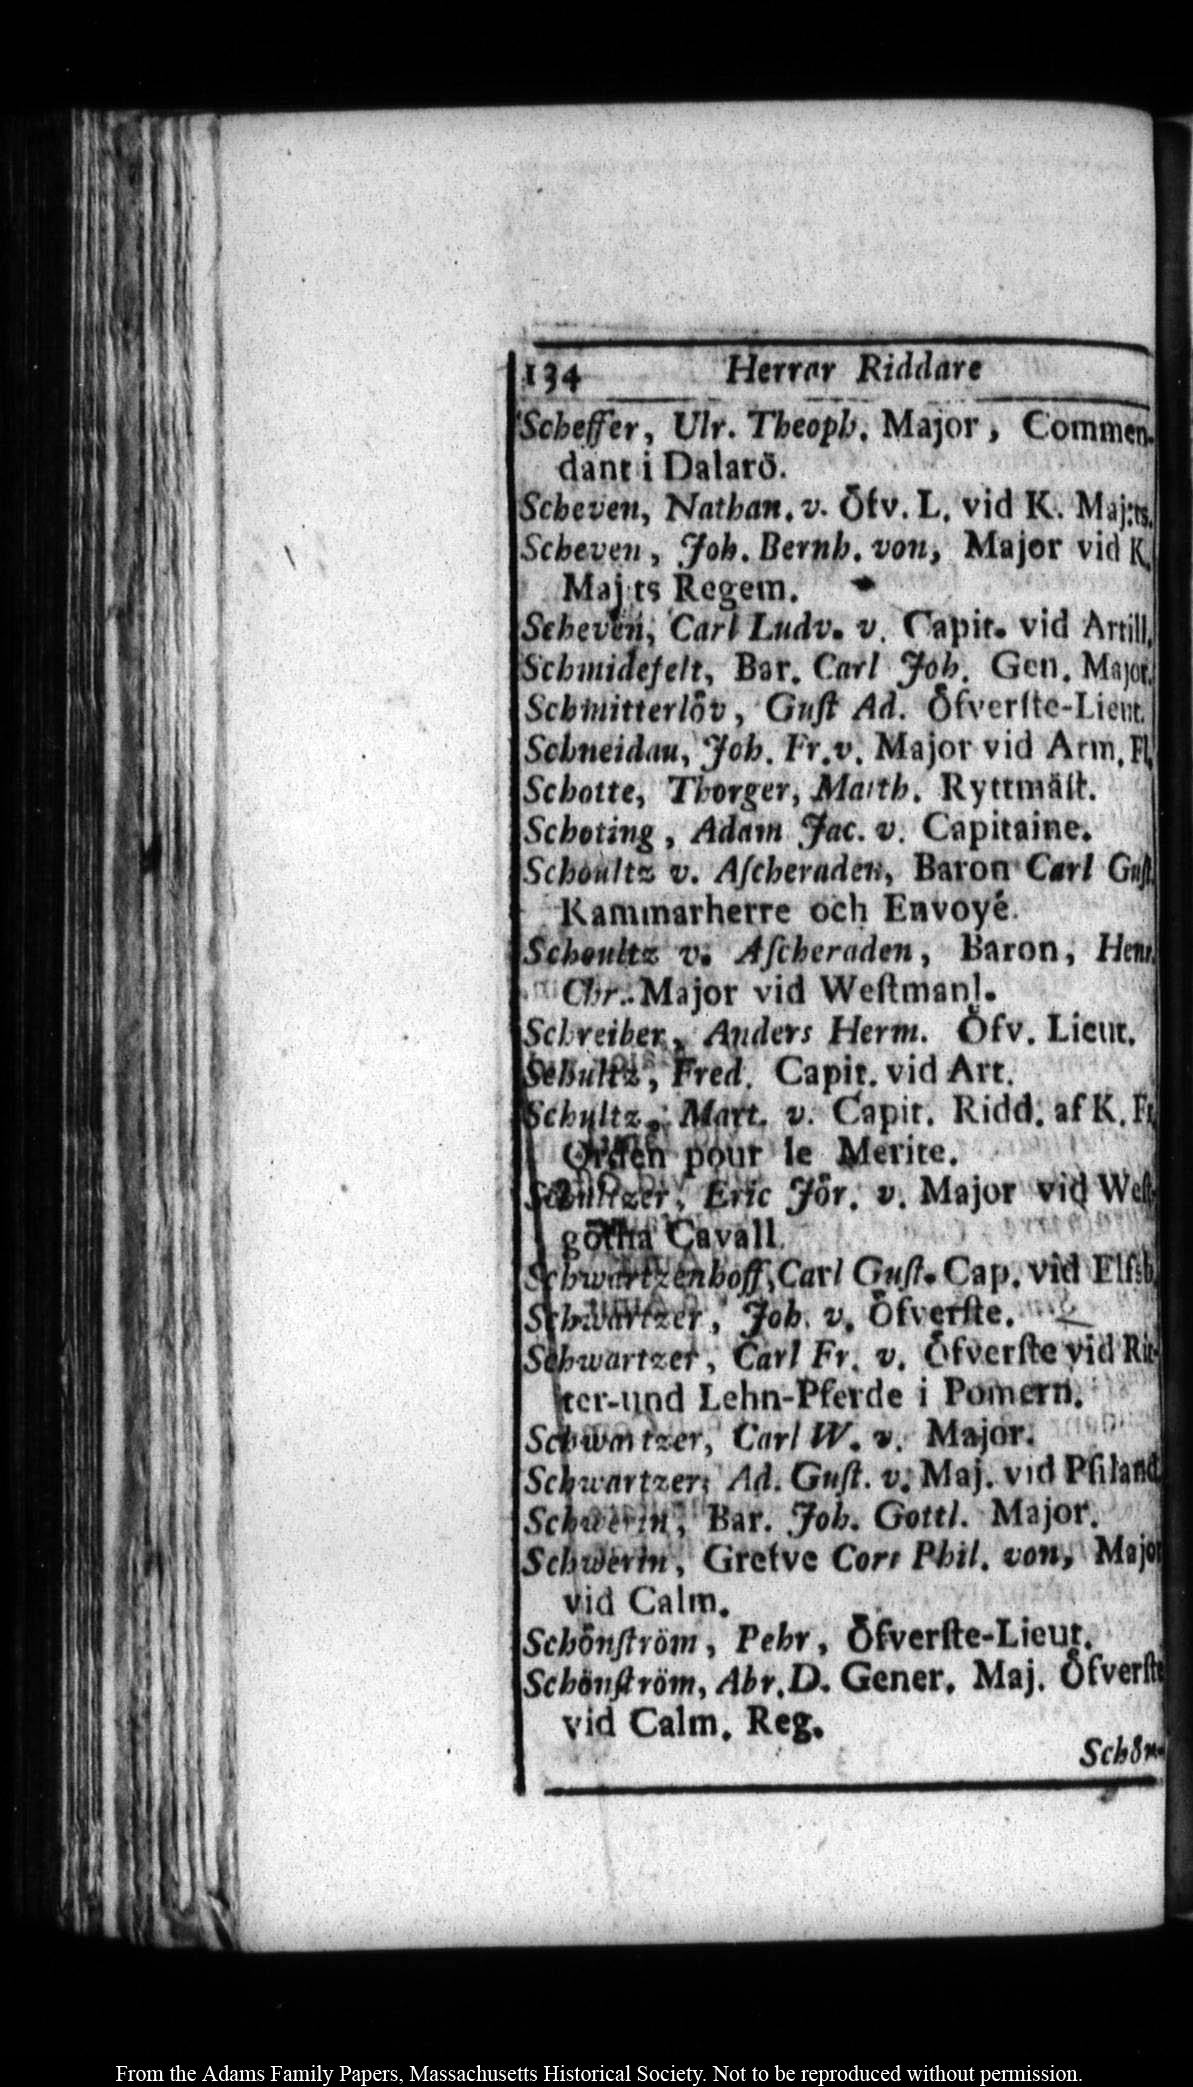 134 Herrar Riddare
Scheffer, Ulr. Theoph. Major, Commen-
dant i Dalarö.
Scheven, Nathan. v. Öfv. L. vid K. Maj:ts.
Scheven, Joh. Bernh. von, Major vid K.
Maj:ts Regem.
Scheven, Carl Ludv. v. Capit. vid Artill.
Schmidefelt, Bar. Carl Joh. Gen. Major.
Schmitterlöv, Gust Ad. Öfverste-Lieut.
Schneidau, Joh. Fr. v. Major vid Arm. Fl.
Schotte, Thorger, Matth. Ryttmäst.
Schoting, Adam Jac. v. Capitaine.
Schoultz v. Ascheraden, Baron Carl Gust.
Kammarherre och Envoyé.
Schoultz v. Ascheraden, Baron, Henr.
Chr. Major vid Westmanl.
Schreiber, Anders Herm. Öfv. Lieut.
Schultz, Fred. Capit. vid Art.
Schultz, Mart. v. Capit. Ridd. af K. Fr.
Orden pour le Merite.
Schultzer, Eric Jör. v. Major vid West-
götha Cavall.
Schwartzenhoff, Carl Gust. Cap. vid Elfsb.
Schwartzer, Joh. v. Öfverste.
Schwartzer, Carl Fr. v. Öfverste vid Rit-
ter-und Lehn-Pferde i Pomern.
Schwartzer, Carl W. v. Major.
Schwartzer, Ad. Gust. v. Maj. vid Psiland.
Schwerin, Bar. Joh. Gottl. Major.
Schwerin, Grefve Cort Phil. von, Major
vid Calm.
Schönström, Pehr, Öfverste-Lieut.
Schönström, Abr. D. Gener. Maj. Öfverste
vid Calm. Reg.
Schön-
From the Adams Family Papers, Massachusetts Historical Society. Not to be reproduced without permission.